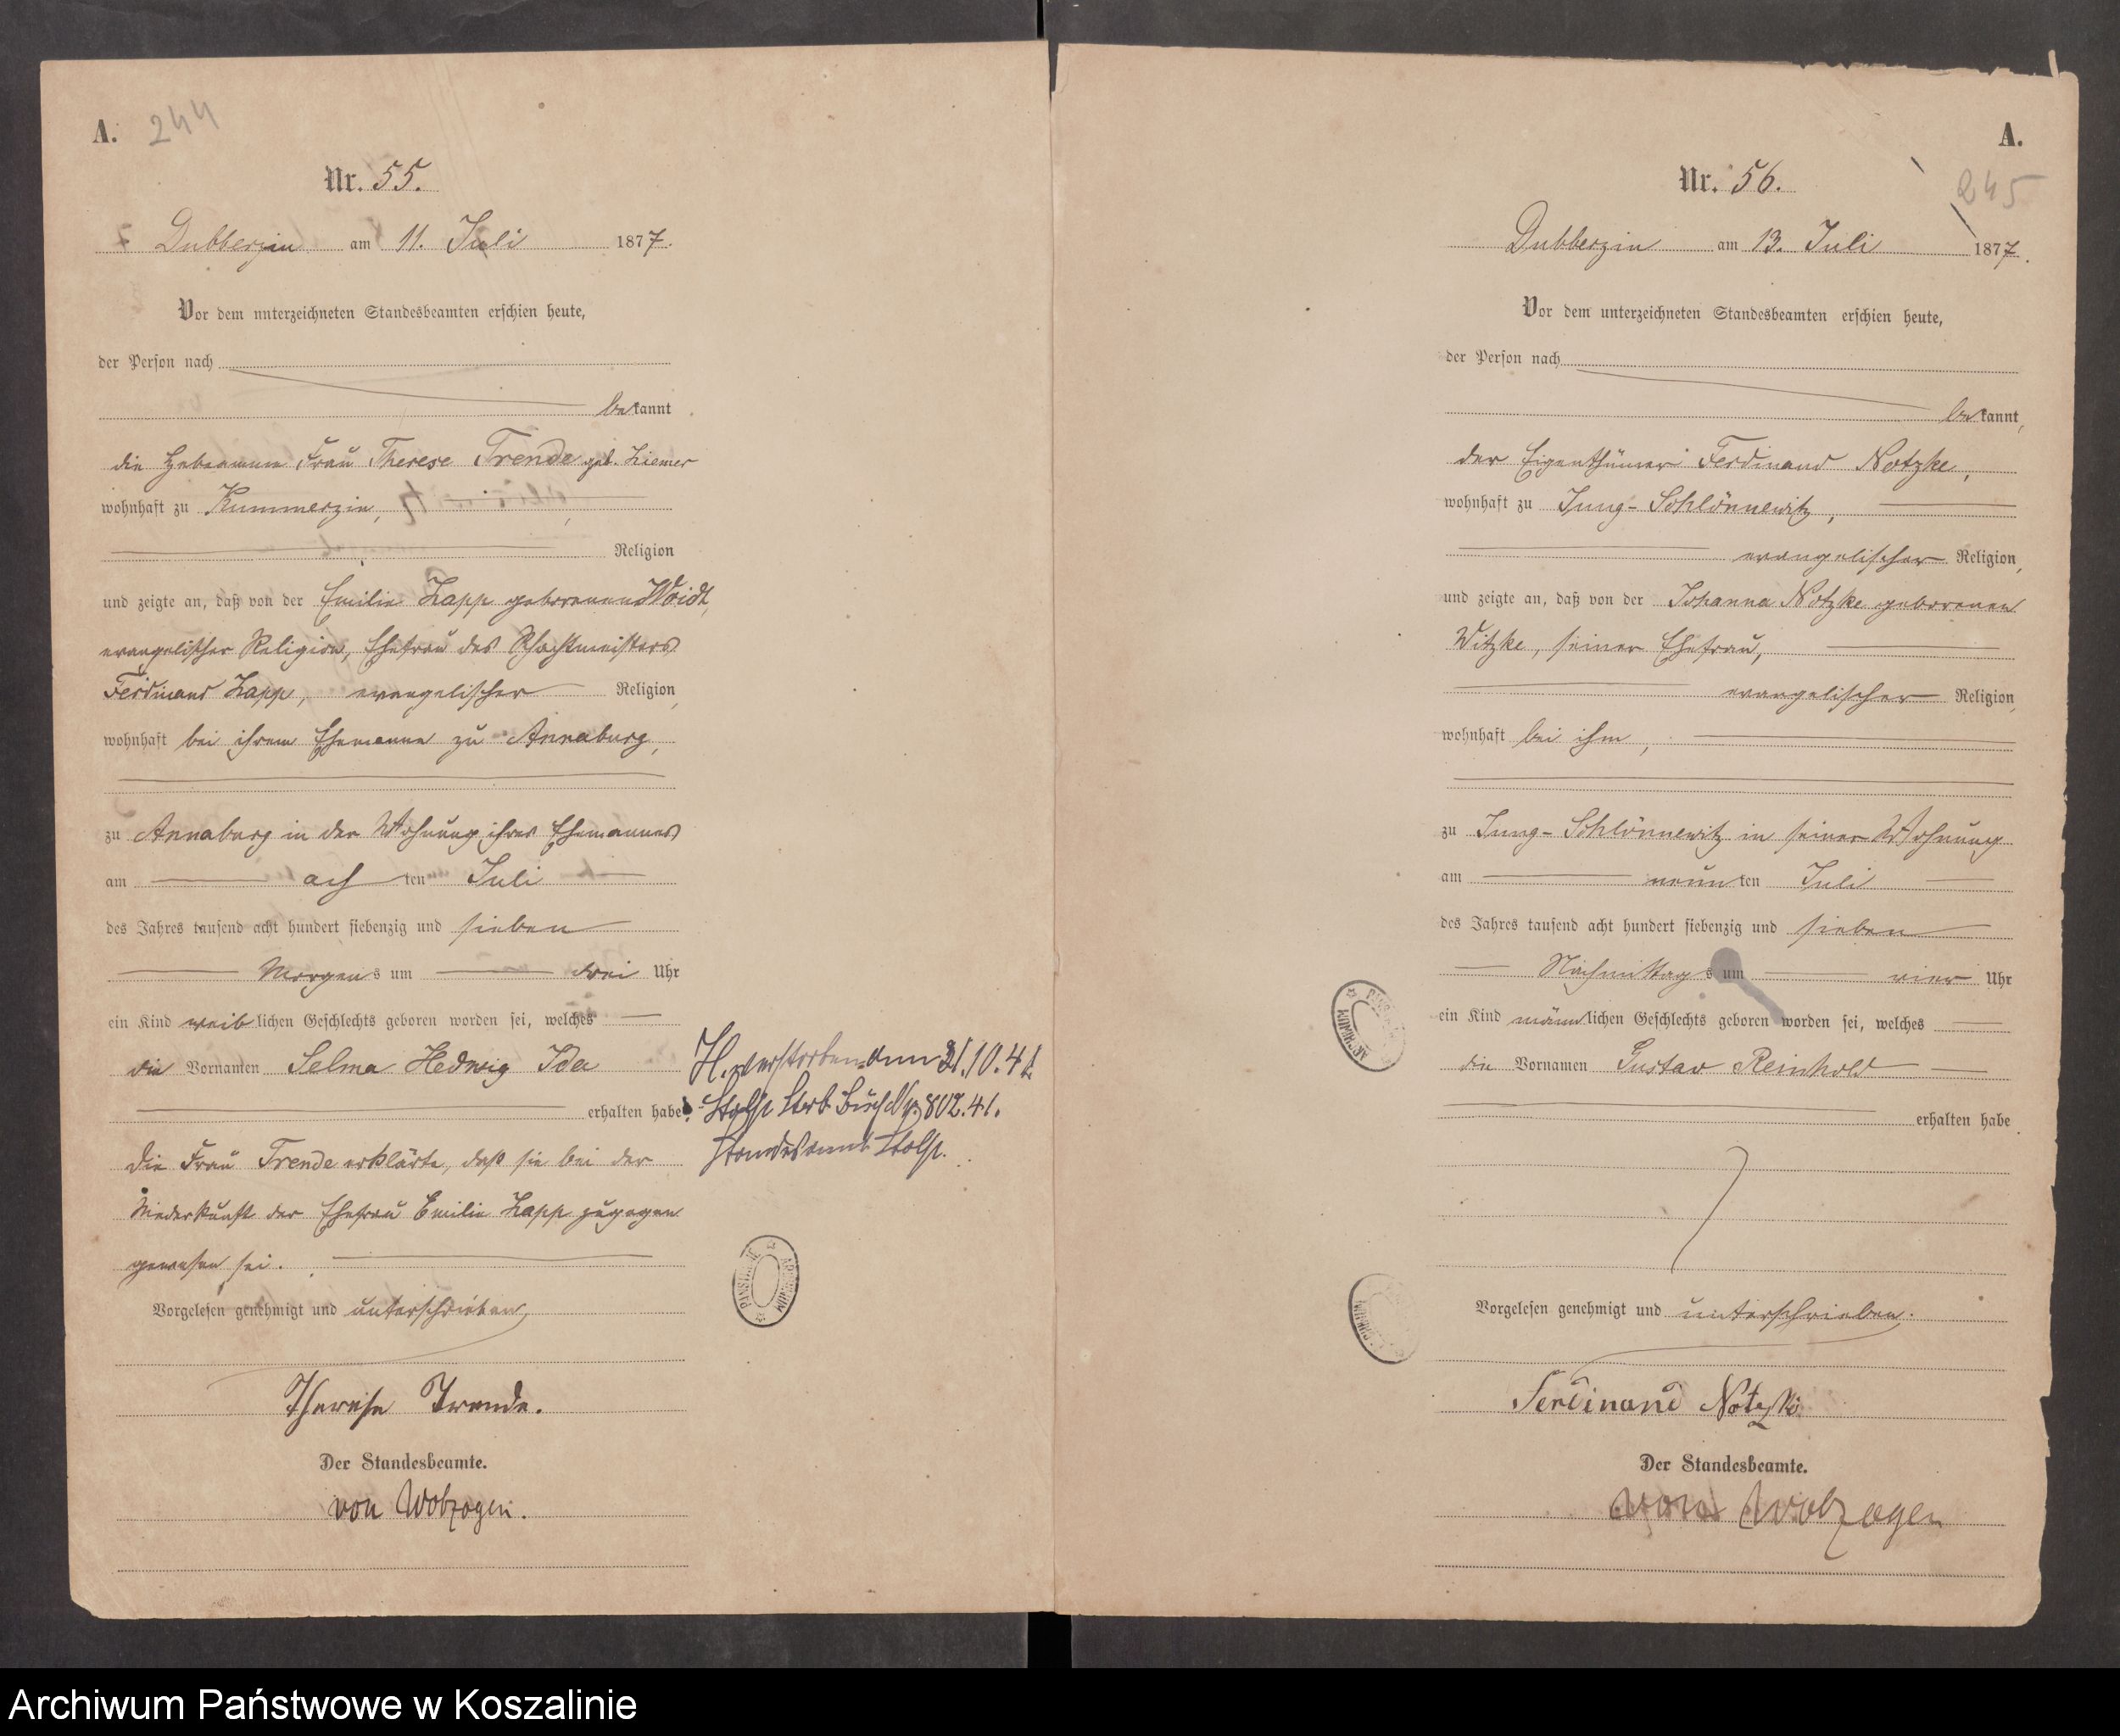 A. 244
Nr. 55.
Dubberzin am 11. Juli 1877.
Vor dem unterzeichneten Standesbeamten erschien heute,
der Person nach
bekannt
die Hebeamme Frau Therese Trende geb. Ziemer
wohnhaft zu Kummerzin,
Religion
und zeigte an, daß von der Emilie Zapp geborenen Woidt,
evangelischer Religion, Ehefrau des Schachtmeisters
Ferdinand Zapp, evangelischer Religion,
wohnhaft bei ihrem Ehemanne zu Annaburg,
zu Annaburg in der Wohnung ihres Ehemannes
am achten Juli
des Jahres tausend acht hundert siebenzig und sieben
Morgens um drei Uhr
ein Kind weiblichen Geschlechts geboren worden sei, welches
die Vornamen Selma Hedwig Ida
erhalten habe.
Die Frau Trende erklärte, daß sie bei der
Niederkunft der Ehefrau Emilie Zapp zugegen
gewesen sei.
Vorgelesen genehmigt und unterschrieben,
Therese Trende.
Der Standesbeamte.
von Wolzogen.
H. verstorben am 21.10.41
Stolp Sterb Buch Nr. 802.41.
Standesamt Stolp.
ARCHIWUM PAŃSTWOWE
A.
245
Nr. 56.
Dubberzin am 13. Juli 1877.
Vor dem unterzeichneten Standesbeamten erschien heute,
der Person nach
bekannt,
der Eigenthümer Ferdinand Notzke,
wohnhaft zu Jung-Schlönnewitz,
evangelischer Religion,
und zeigte an, daß von der Johanna Notzke geborenen
Witzke, seiner Ehefrau,
evangelischer Religion,
wohnhaft bei ihm,
zu Jung-Schlönnewitz in seiner Wohnung
am neunten Juli
des Jahres tausend acht hundert siebenzig und sieben
Nachmittags um vier Uhr
ein Kind männlichen Geschlechts geboren worden sei, welches
die Vornamen Gustav Reinhold
erhalten habe.
Vorgelesen genehmigt und unterschrieben.
Ferdinand Notzke
Der Standesbeamte.
von Wolzogen
Archiwum Państwowe w Koszalinie